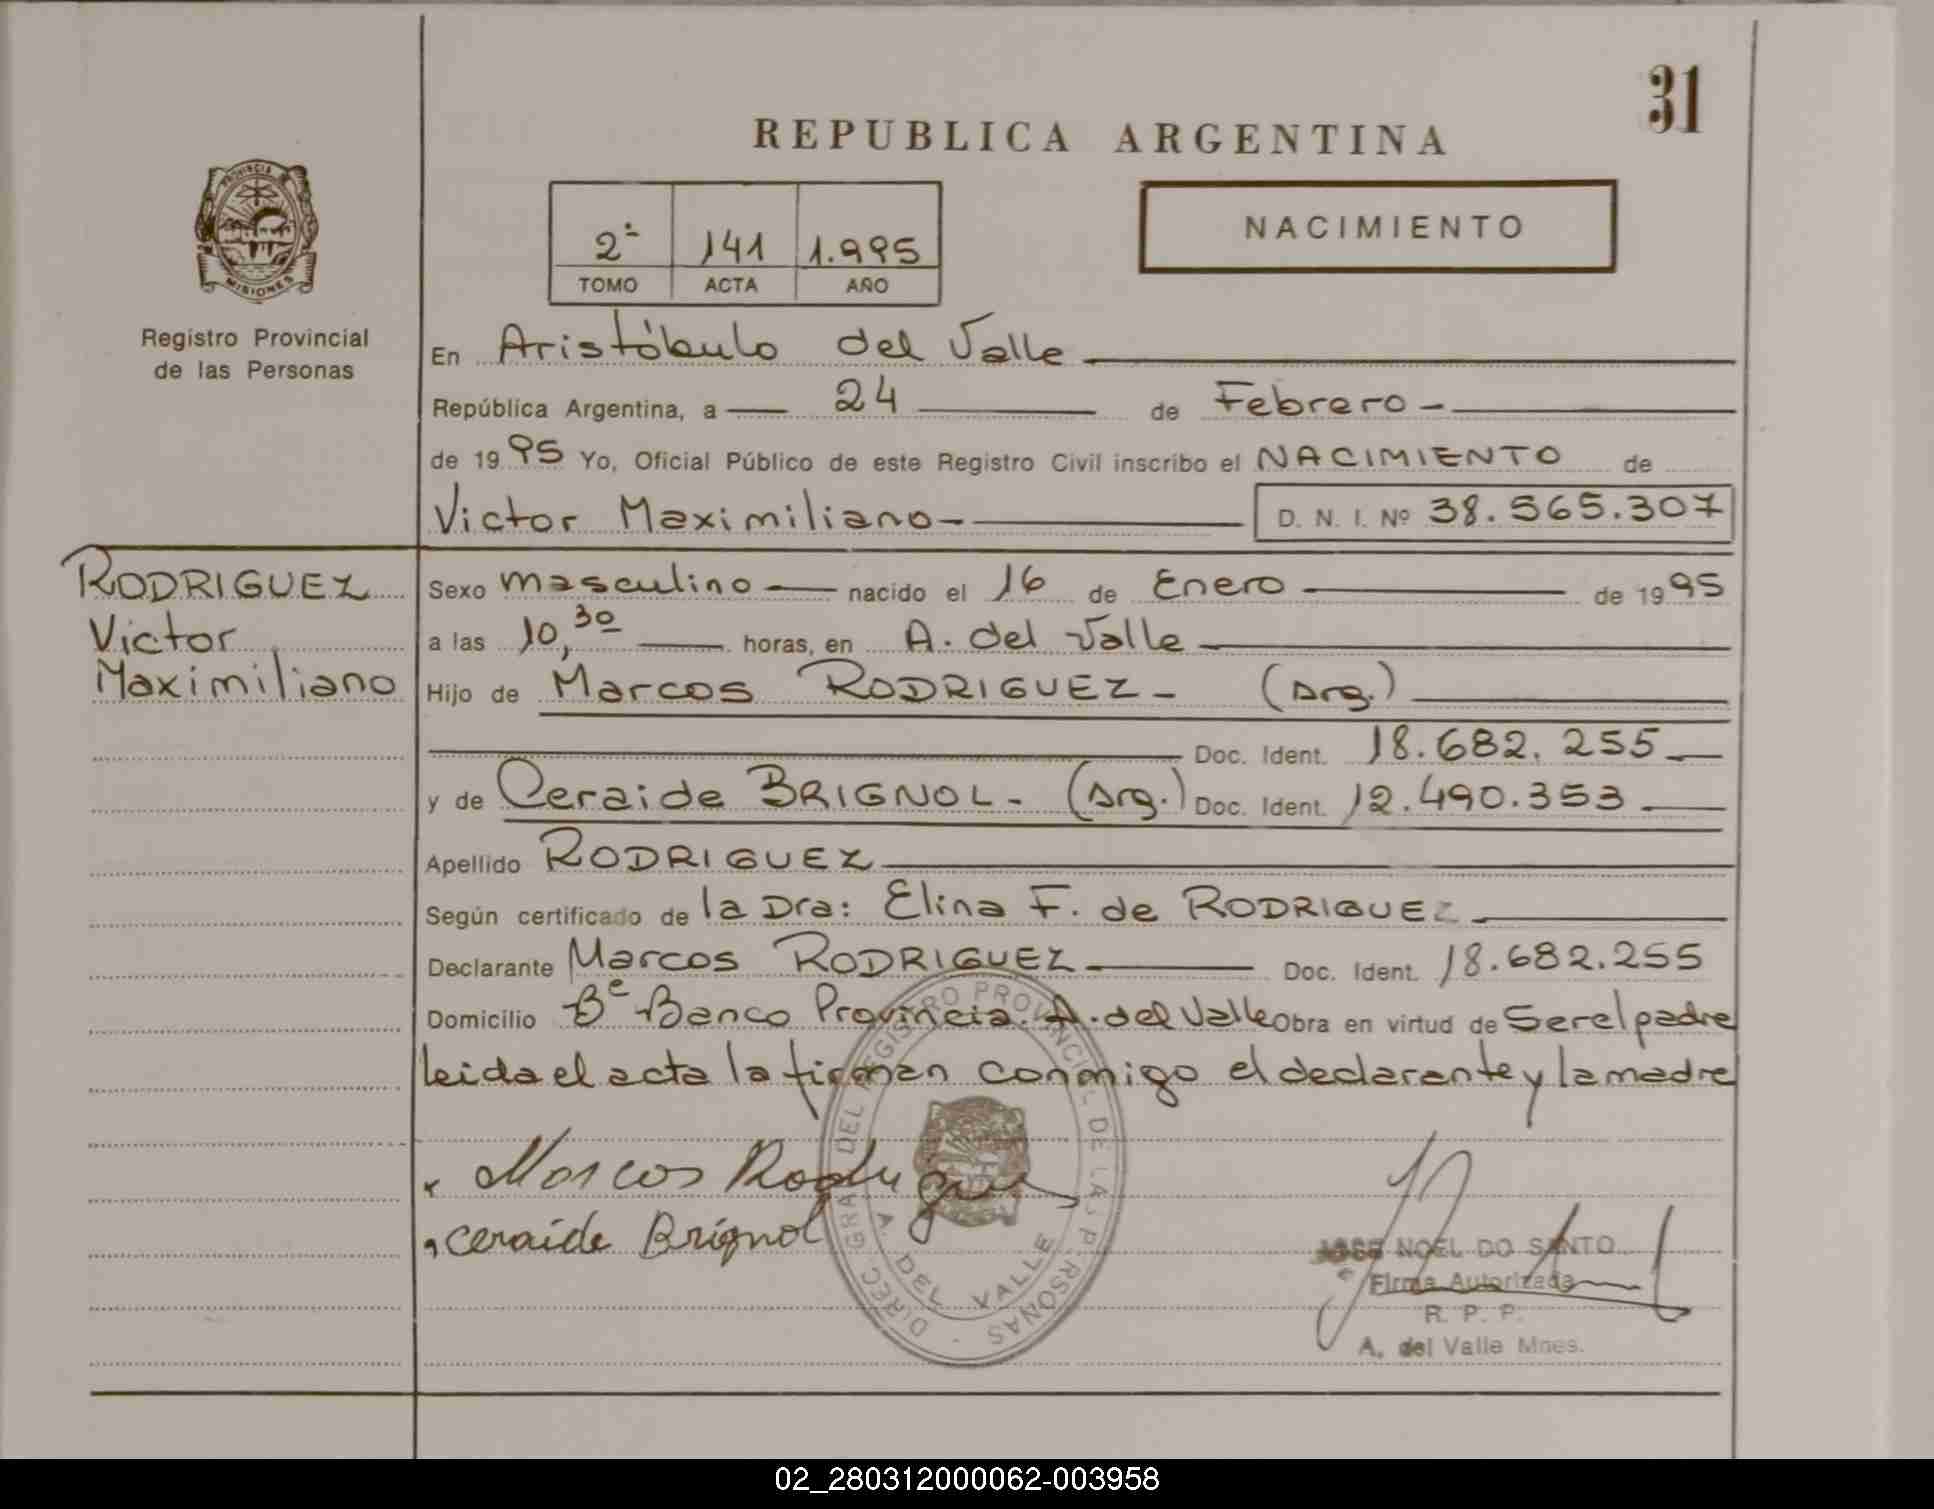 31
REPUBLICA ARGENTINA
PROVINCIA
MISIONES
Registro Provincial
de las Personas
2º 141 1.995
TOMO ACTA AÑO
NACIMIENTO
En Aristóbulo del Valle
República Argentina, a 24 de Febrero -
de 1995 Yo, Oficial Público de este Registro Civil inscribo el NACIMIENTO de
Victor Maximiliano - D. N. I. Nº 38.565.307
RODRIGUEZ
Victor
Maximiliano
Sexo masculino nacido el 16 de Enero de 1995
a las 10,30 horas, en A. del Valle
Hijo de Marcos RODRIGUEZ - (Arg.)
Doc. Ident. 18.682.255
y de Ceraide BRIGNOL - (Arg.) Doc. Ident. 12.490.353
Apellido RODRIGUEZ
Según certificado de la Dra: Elina F. de RODRIGUEZ
Declarante Marcos RODRIGUEZ Doc. Ident. 18.682.255
Domicilio Bº Banco Provincia. A. del Valle Obra en virtud de Ser el padre
leida el acta la firman conmigo el declarante y la madre
Marcos Rodriguez
ceraide Brignol
DIREC. GRAL DEL REGISTRO PROVINCIAL DE LAS PERSONAS -
A. DEL VALLE
JOSE NOEL DO SANTO
Firma Autorizada
R. P. P.
A. del Valle Mnes.
02_280312000062-003958